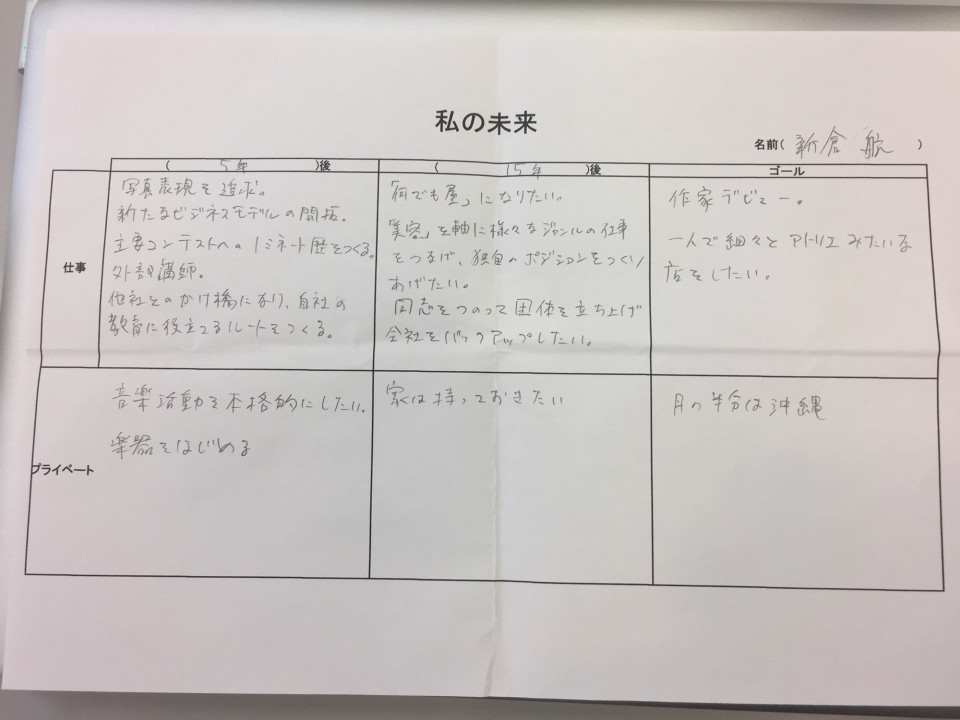 私の未来
名前( 新倉 航 )
( 5年 )後
( 15年 )後
ゴール
仕事
写真表現を追求。
新たなビジネスモデルの開拓。
主要コンテストへのノミネート歴をつくる。
外部講師。
他社とのかけ橋になり、自社の
教育に役立てるルートをつくる。
「何でも屋」になりたい。
「美容」を軸に様々なジャンルの仕事
をつなげ、独自のポジションをつくり
あげたい。
同志をつのって団体を立ち上げ
会社をバックアップしたい。
作家デビュー。
一人で細々とアトリエみたいな
店をしたい。
プライベート
音楽活動を本格的にしたい。
楽器をはじめる
家は持っておきたい
月の半分は沖縄